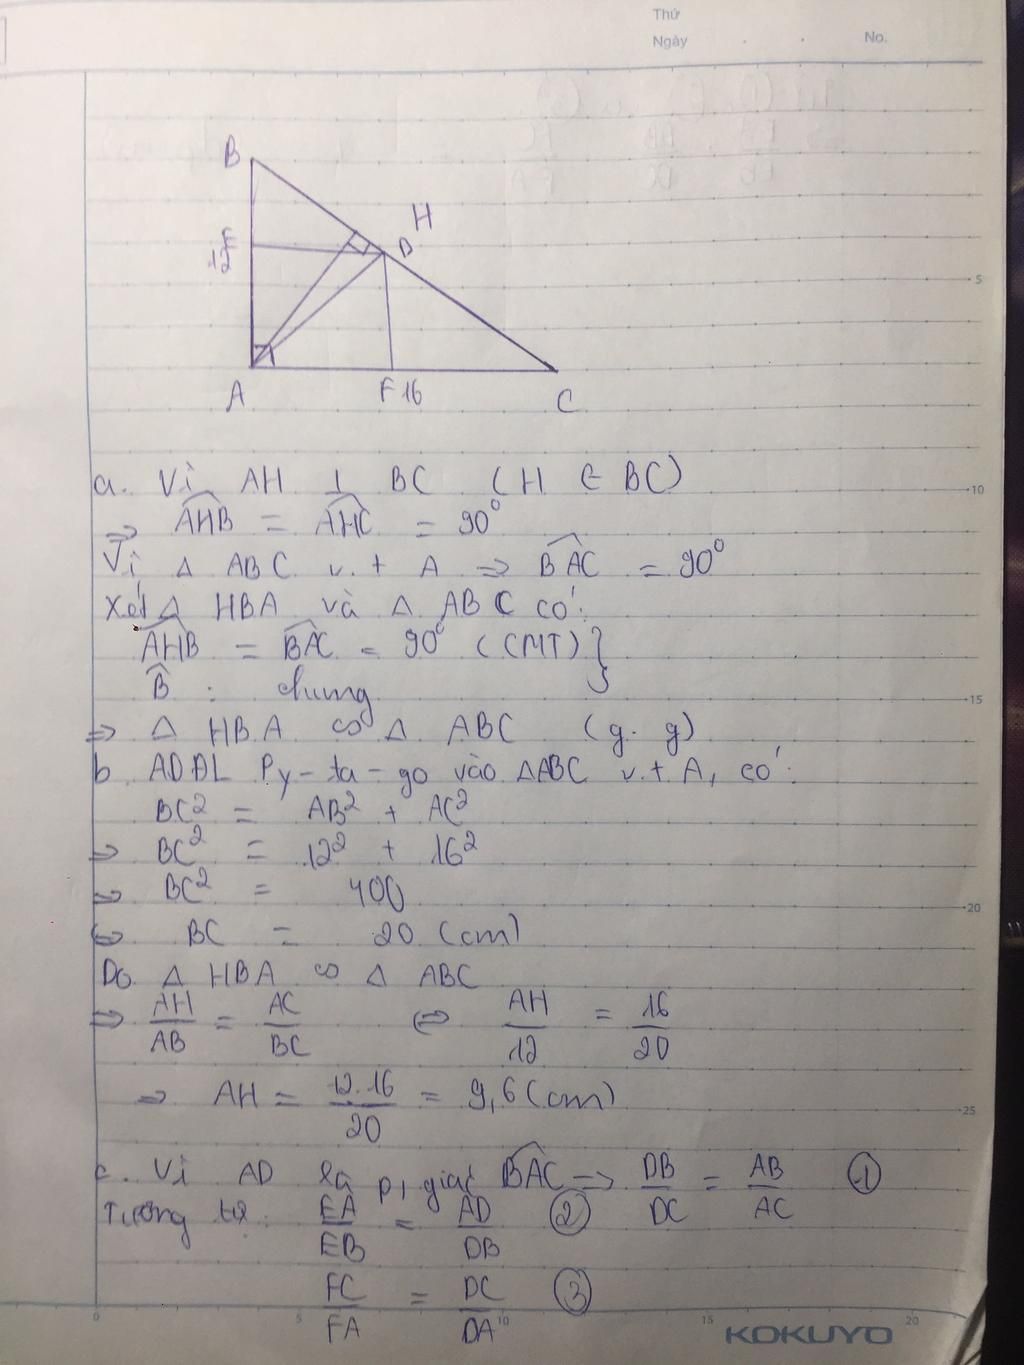 Thứ
Ngày . . No.
B
H
D
E
12
A
F 16
C
a. Vì AH ⊥ BC (H ∈ BC)
=> AHB = AHC = 90°
Vì Δ ABC v.t A => BAC = 90°
Xét Δ HBA và Δ ABC có:
AHB = BAC = 90° (CMT) }
B : chung
=> Δ HBA ∽ Δ ABC (g.g)
b. ADĐL Py-ta-go vào ΔABC v.t A, có:
BC² = AB² + AC²
=> BC² = 12² + 16²
=> BC² = 400
<=> BC = 20 (cm)
Do Δ HBA ∽ Δ ABC
=> AH/AB = AC/BC <=> AH/12 = 16/20
=> AH = 12.16/20 = 9,6 (cm)
c. Vì AD là p/giác BAC => DB/DC = AB/AC ①
Tương tự: EA/EB = AD/DB ②
FC/FA = DC/DA ③
5
10
15
20
25
0 5 10 15 20
KOKUYO